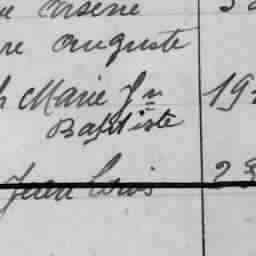 Arsène
Auguste
Marie Jn 19
Baptiste
Jean Louis 23